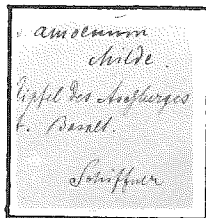 amoenum
Milde.
Gipfel des Arschberges
b. Basalt.
Schiffner